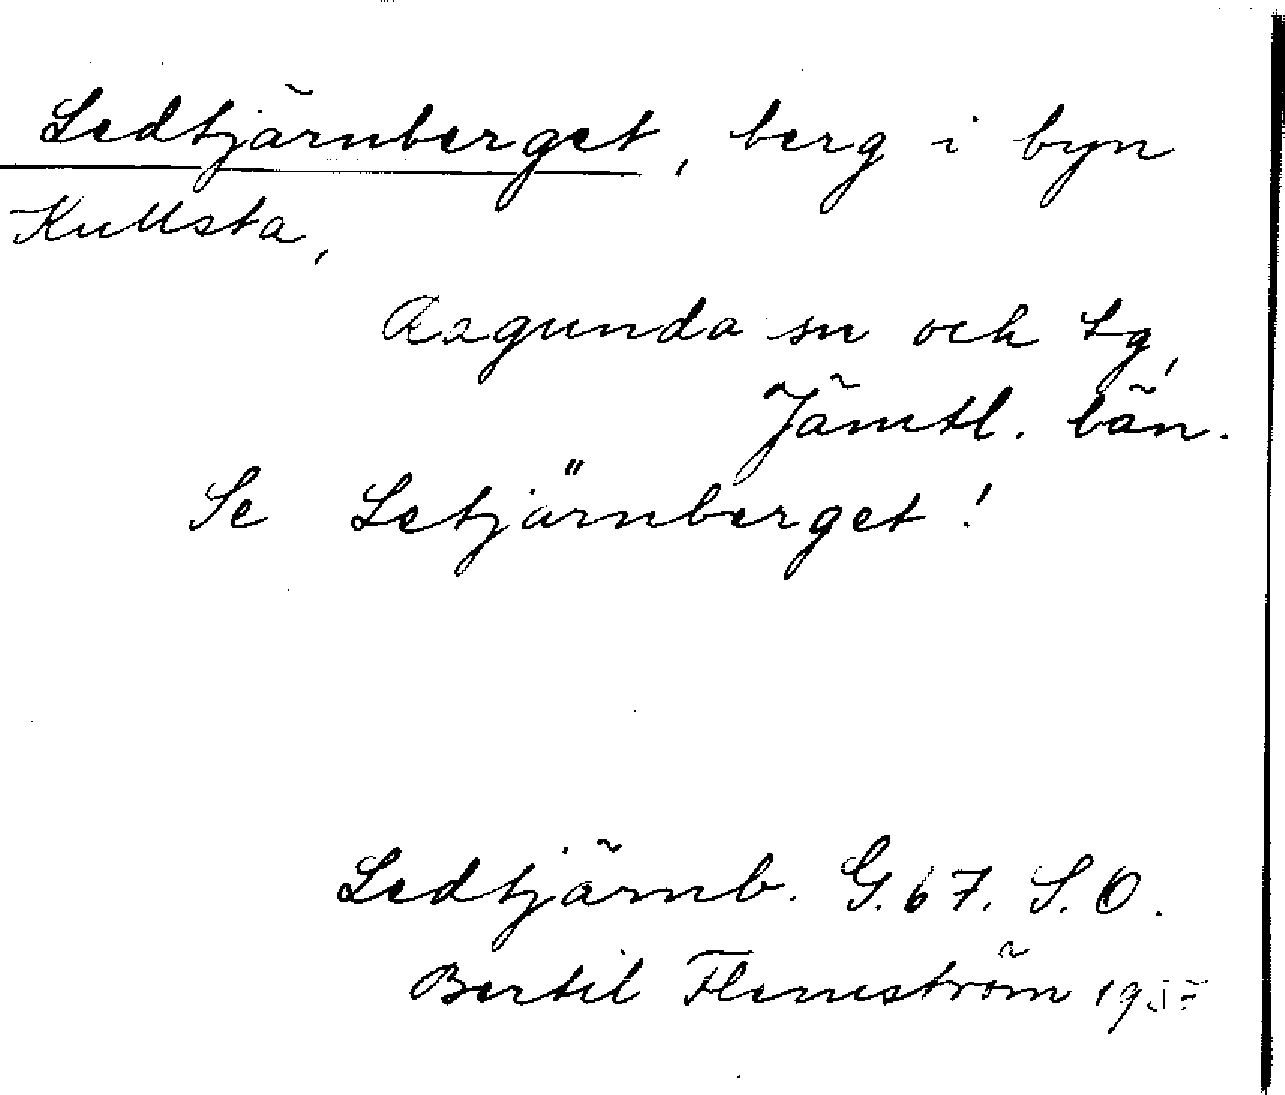 Ledtjärnberget, berg i byn
Kullsta,
Ragunda sn och tg,
Jämtl. län.
Se Letjärnberget!
Ledtjärnb. G. 67. S. O.
Bertil Flemström